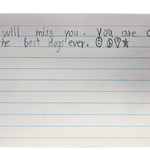 will miss you. You are
the best dogs ever. ☺☮♡★